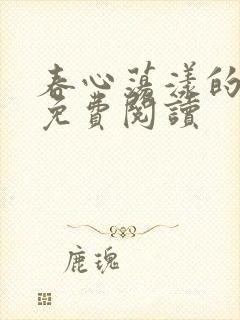 春心蕩漾的
免費閱讀
鹿瑰